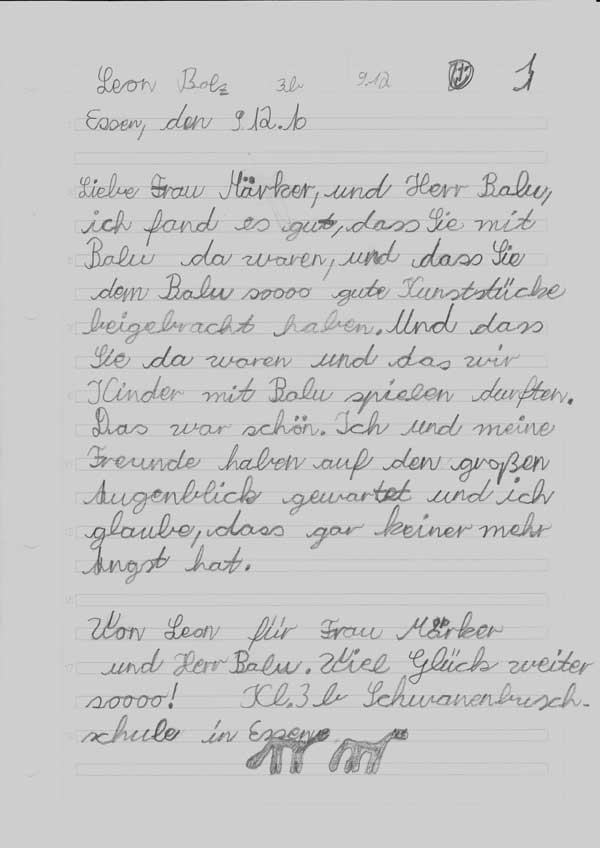 Leon Bolz 3b 9.12 1
Essen, den 9.12.10
Liebe Frau Märker, und Herr Balu,
ich fand es gut, dass Sie mit
Balu da waren, und dass Sie
dem Balu soooo gute Kunststücke
beigebracht haben. Und dass
Sie da waren und das wir
Kinder mit Balu spielen durften.
Das war schön. Ich und meine
Freunde haben auf den großen
Augenblick gewartet und ich
glaube, dass gar keiner mehr
Angst hat.
Von Leon für Frau Märker
und Herr Balu. Viel Glück weiter
soooo! Kl. 3 b Schwanenbusch-
schule in Essen